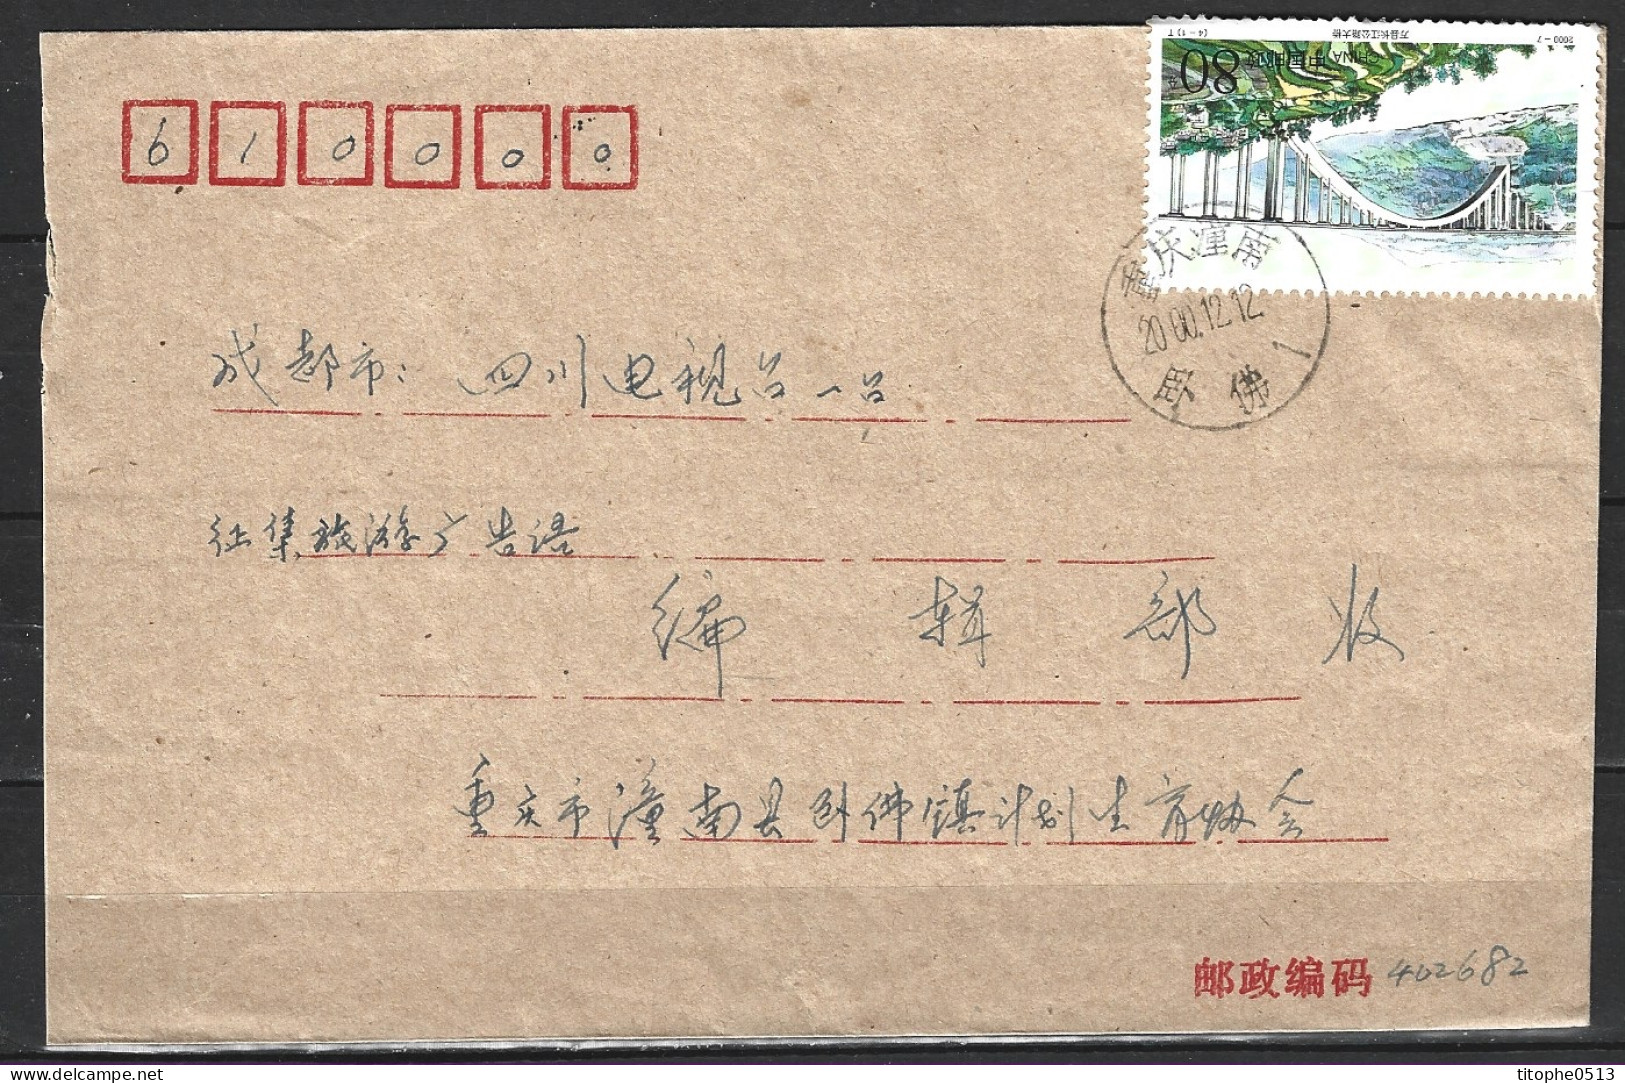 610000
2000-7 万县长江公路大桥 (4-1)T
80分 中国邮政 CHINA
重庆潼南
2000.12.12
卧佛 1
成都市：四川电视台一台
征集旅游广告语
编辑部收
重庆市潼南县卧佛镇计划生育协会
邮政编码 402682
titophe0513